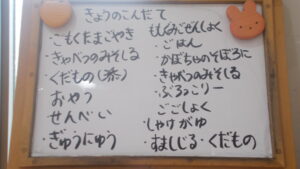 きょうのこんだて
・ごもくたまごやき
・きゃべつのみそしる
・くだもの(茶)
おやつ
・せんべい
・ぎゅうにゅう
もぐもぐきしょく
・ごはん
・かぼちゃのそぼろに
・きゃべつのみそしる
・ぶろっこりー
ごごしょく
・しゃけがゆ
・すましじる・くだもの